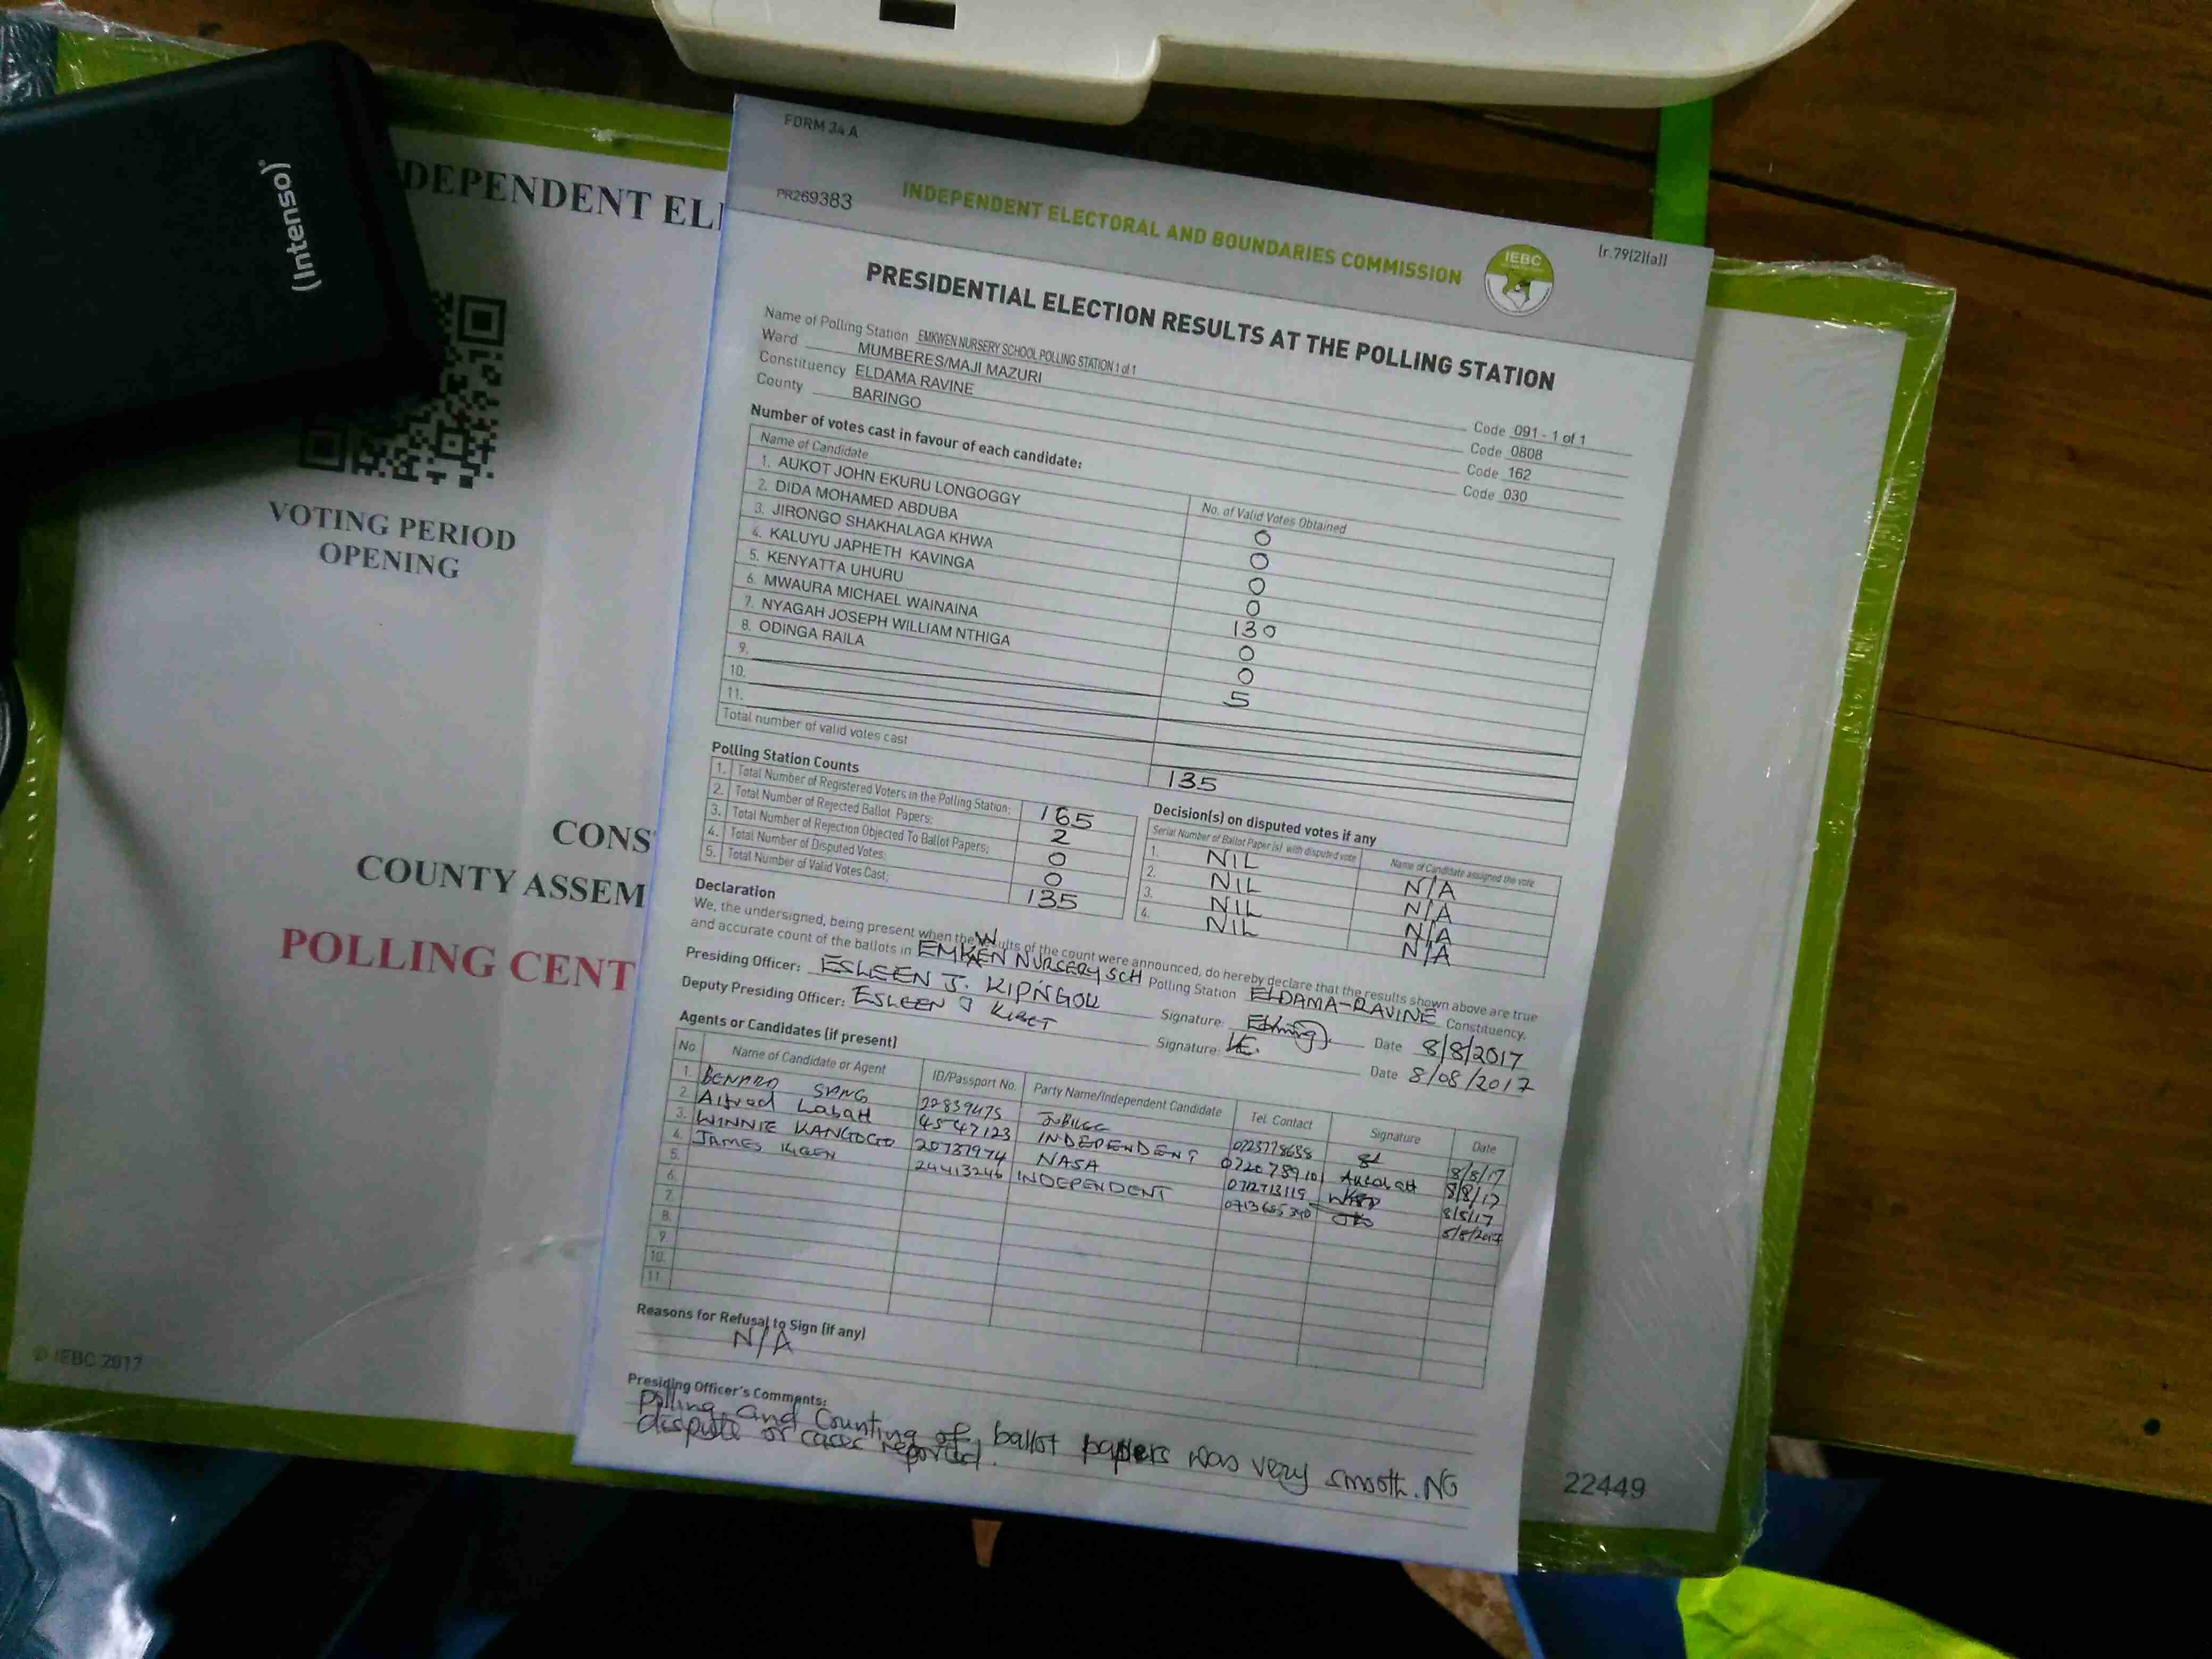 (Intenso)
DEPENDENT EL
VOTING PERIOD
OPENING
CONS
COUNTY ASSEM
POLLING CENT
© IEBC 2017
22449
FORM 34 A
PR269383
INDEPENDENT ELECTORAL AND BOUNDARIES COMMISSION
IEBC
(r.79(2)(a))
PRESIDENTIAL ELECTION RESULTS AT THE POLLING STATION
Name of Polling Station EMKWEN NURSERY SCHOOL POLLING STATION 1 of 1 Code 091 - 1 of 1
Ward MUMBERES/MAJI MAZURI Code 0808
Constituency ELDAMA RAVINE Code 162
County BARINGO Code 030
Number of votes cast in favour of each candidate:
Name of Candidate No. of Valid Votes Obtained
1. AUKOT JOHN EKURU LONGOGGY 0
2. DIDA MOHAMED ABDUBA 0
3. JIRONGO SHAKHALAGA KHWA 0
4. KALUYU JAPHETH KAVINGA 0
5. KENYATTA UHURU 130
6. MWAURA MICHAEL WAINAINA 0
7. NYAGAH JOSEPH WILLIAM NTHIGA 0
8. ODINGA RAILA 5
9.
10.
11.
Total number of valid votes cast 135
Polling Station Counts
1. Total Number of Registered Voters in the Polling Station; 165
2. Total Number of Rejected Ballot Papers; 2
3. Total Number of Rejection Objected To Ballot Papers; 0
4. Total Number of Disputed Votes; 0
5. Total Number of Valid Votes Cast; 135
Decision(s) on disputed votes if any
Serial Number of Ballot Paper(s) with disputed vote Name of Candidate assigned the vote
1. NIL N/A
2. NIL N/A
3. NIL N/A
4. NIL N/A
Declaration
We, the undersigned, being present when the results of the count were announced, do hereby declare that the results shown above are true
and accurate count of the ballots in EMKWEN NURSERY SCH Polling Station ELDAMA-RAVINE Constituency.
Presiding Officer: ESLEEN J. KIPNGOK Signature: Date 8/8/2017
Deputy Presiding Officer: ESLEEN J KIBET Signature: Date 8/08/2017
Agents or Candidates (if present)
No. Name of Candidate or Agent ID/Passport No. Party Name/Independent Candidate Tel. Contact Signature Date
1. BENARD SANG 22839475 JUBILEE 0723778688 8/8/17
2. Alfred Labatt 4547123 INDEPENDENT 0720789101 8/8/17
3. WINNIE KANGOGO 20737974 NASA 0712713119 8/8/17
4. JAMES KIGEN 24413246 INDEPENDENT 0713685340 8/8/2017
5.
6.
7.
8.
9.
10.
11.
Reasons for Refusal to Sign (if any)
N/A
Presiding Officer's Comments:
Polling and Counting of ballot papers was very smooth. NO
dispute or cases reported.